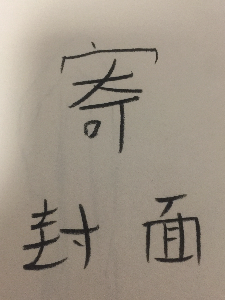 寄
封面